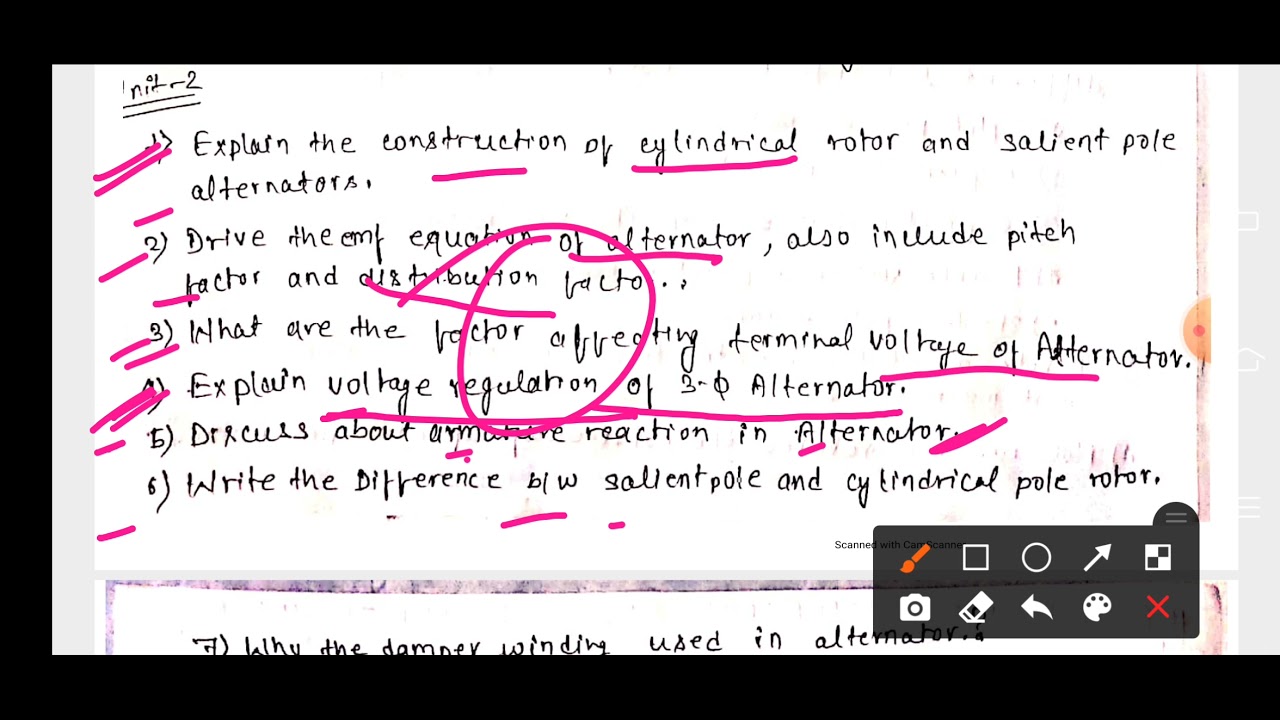 Unit-2
1) Explain the construction of cylindrical rotor and salient pole
alternators.
2) Drive the emf equation of alternator, also include pitch
factor and distribution facto..
3) What are the factor affecting terminal voltage of Alternator.
4) Explain voltage regulation of 3-Φ Alternator.
5) Discuss about armature reaction in Alternator.
6) Write the Difference b/w salient pole and cylindrical pole rotor.
Scanned with CamScanner
7) Why the damper winding used in alternator.